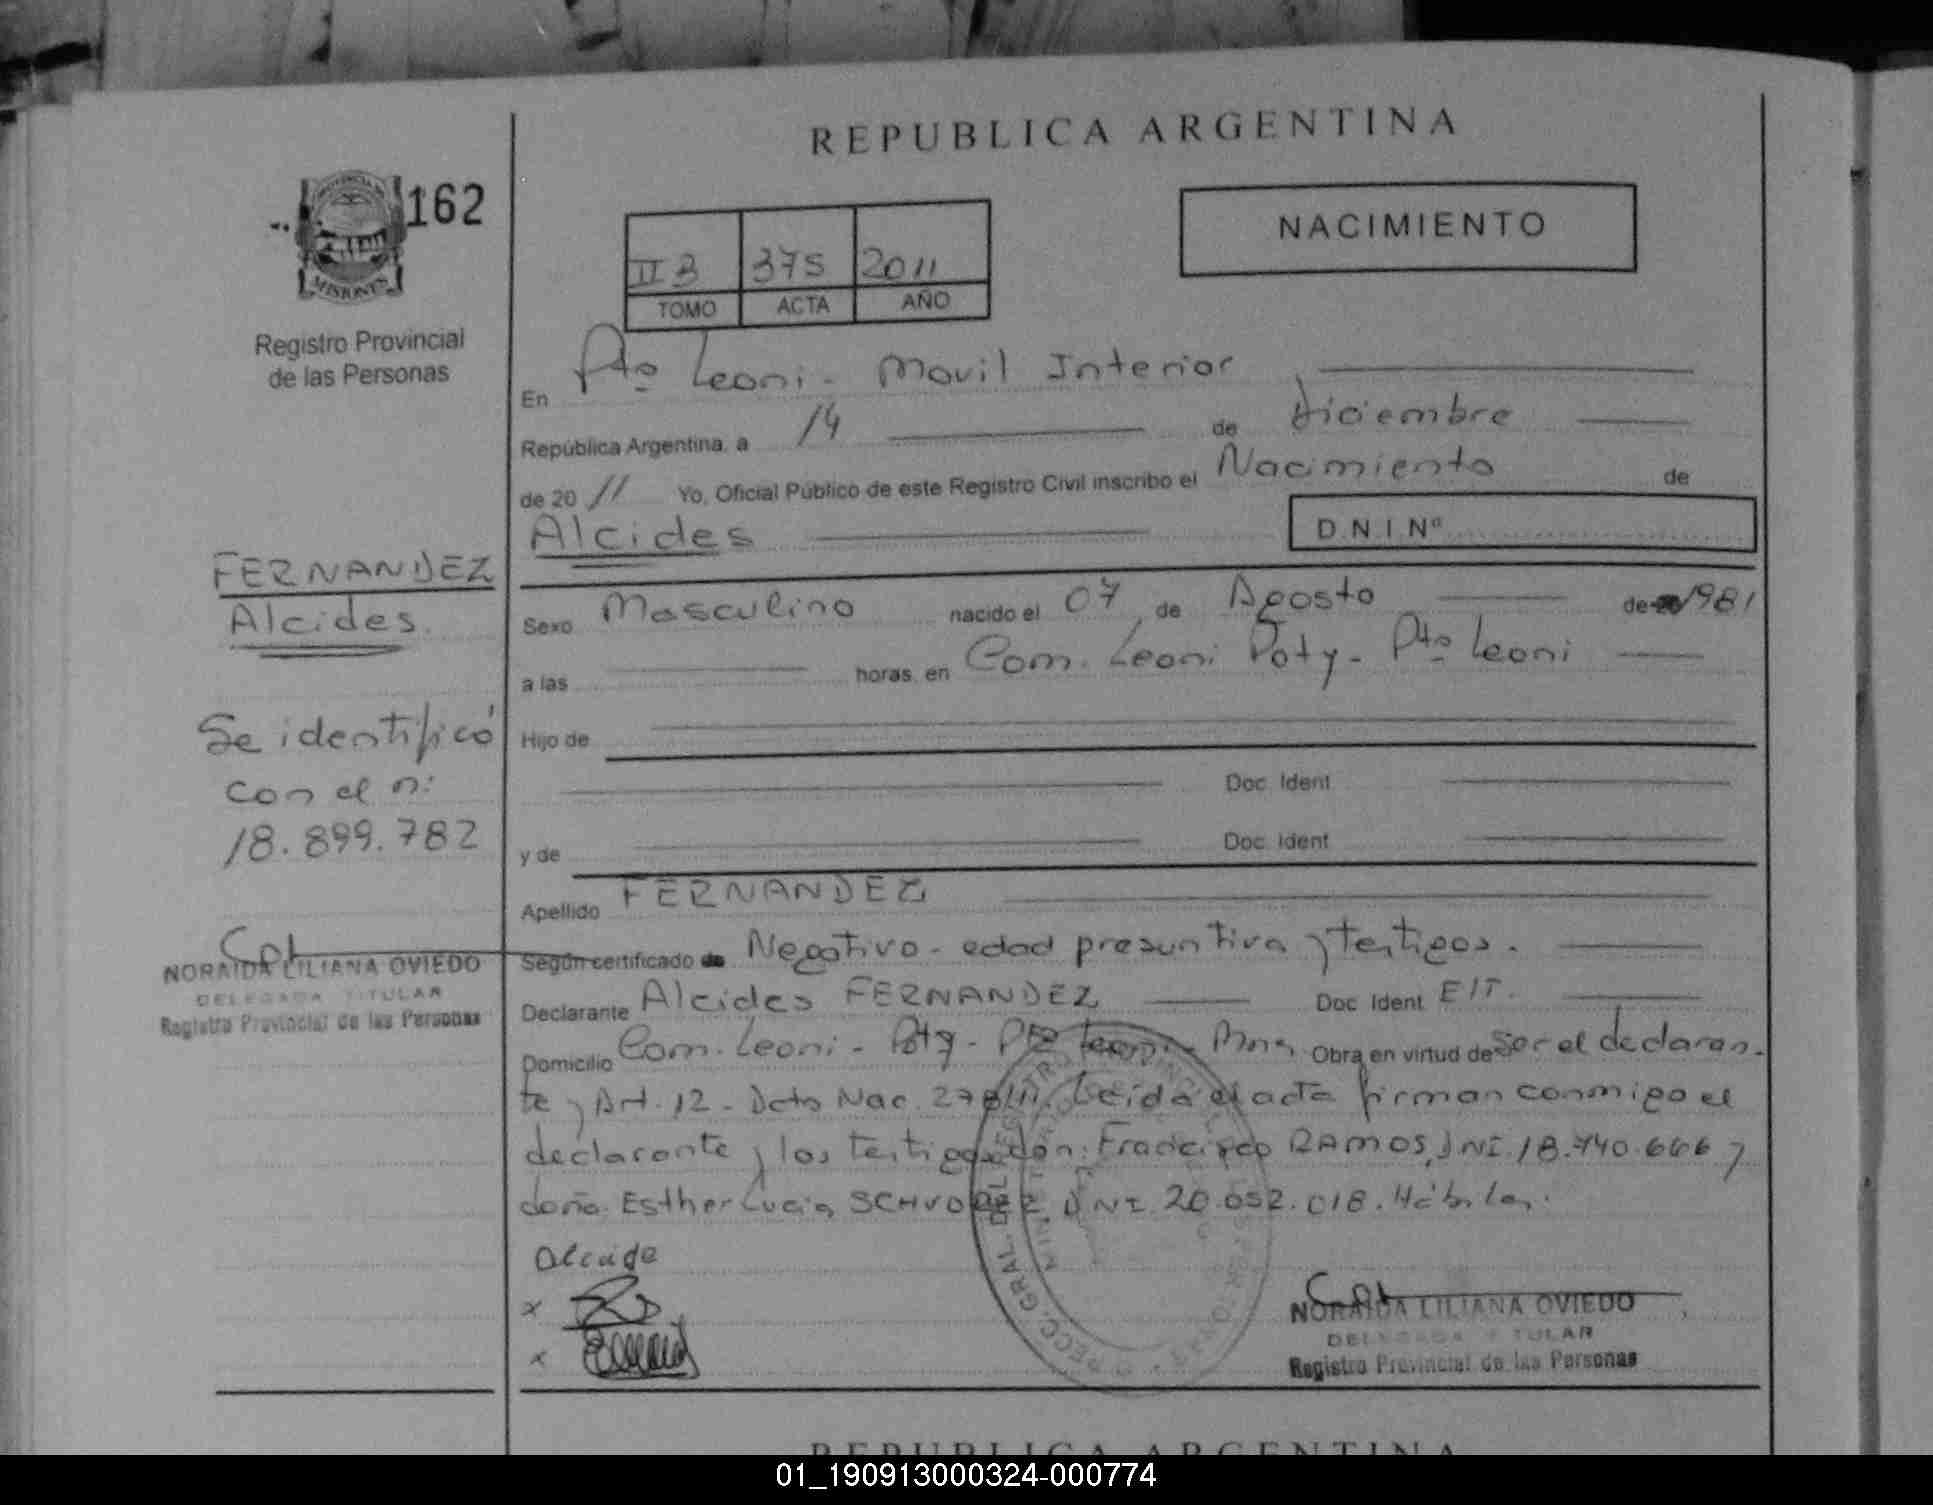 REPUBLICA ARGENTINA
162
MISIONES
Registro Provincial
de las Personas
NACIMIENTO
II B 375 2011
TOMO ACTA AÑO
En Pto Leoni - Movil Interior
República Argentina, a 14 de diciembre
de 20 11 Yo, Oficial Público de este Registro Civil inscribo el Nacimiento de
Alcides D.N.I. Nº
FERNANDEZ
Alcides.
Sexo Masculino nacido el 07 de Agosto de 1981
a las horas, en Com. Leoni Poty - Pto Leoni
Se identificó
con el n:
18.899.782
Hijo de
Doc. Ident
y de Doc. Ident
Apellido FERNANDEZ
NORAIDA LILIANA OVIEDO
DELEGADA TITULAR
Registro Provincial de las Personas
Según certificado de Negativo - edad presuntiva y testigos.
Declarante Alcides FERNANDEZ Doc. Ident E/T.
Domicilio Com. Leoni - Poty - Pto Leoni - Mnes Obra en virtud de ser el declaran-
te y Art. 12 - Dcto Nac. 278/11. Leida el acta firman conmigo el
declarante y los testigos don: Francisco RAMOS, DNI. 18.740.666 y
doña Esther Lucia DNI 20.052.018. Hábiles.
Alcide
x
x
NORAIDA LILIANA OVIEDO
DELEGADA TITULAR
Registro Provincial de las Personas
REPUBLICA ARGENTINA
01_190913000324-000774